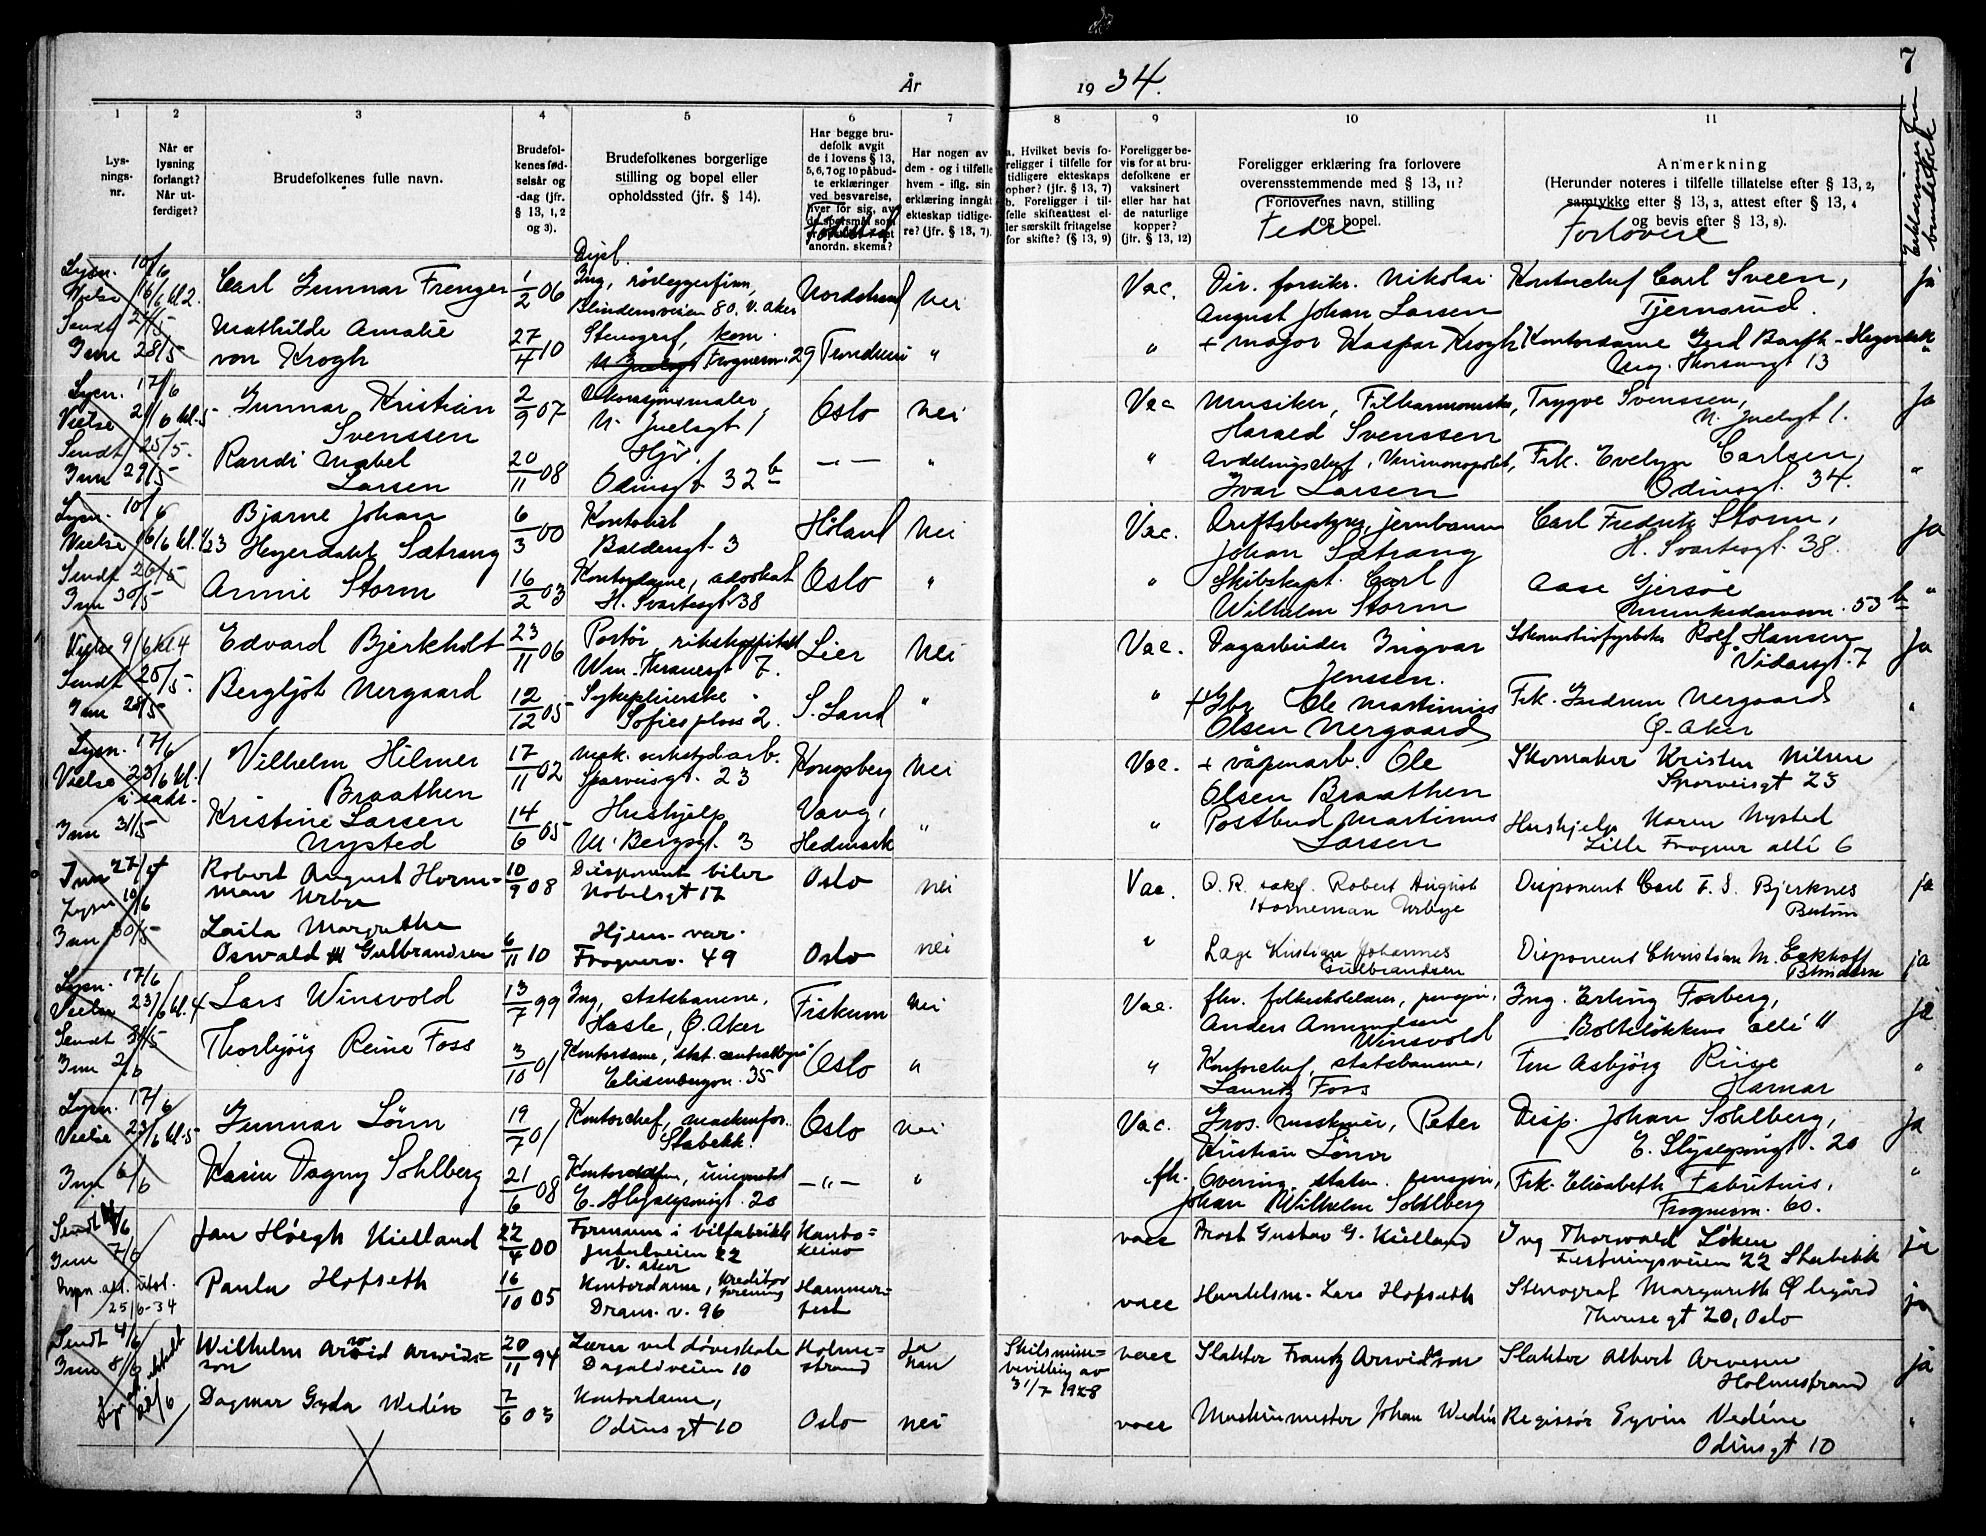 7
År
19 34.
1
2
3
4
5
6
7
8
9
10
11
Lys-
nings-
nr.
Når er
lysning
forlangt?
Når ut-
ferdiget?
Brudefolkenes fulle navn.
Brudefol-
kenes fød-
selsår og
-dag (jfr.
§ 13, 1, 2
og 3).
Brudefolkenes borgerlige
stilling og bopel eller
opholdssted (jfr. § 14).
Har begge bru-
defolk avgit
de i lovens § 13,
5, 6, 7 og 10 påbud-
te erklæringer
ved besvarelse,
hver for sig, av
anordn. skema?
Fødested
Har nogen av
dem - og i tilfelle
hvem - iflg. sin
erklæring inngått
ekteskap tidlige-
re? (jfr. § 13, 7).
a. Hvilket bevis fo-
religger i tilfelle for
tidligere ekteskaps
ophør? (jfr. § 13, 7)
b. Foreligger i til-
felle skifteattest el-
ler særskilt fritagelse
for skifte? (§ 13, 9)
Foreligger be-
vis for at bru-
defolkene er
vaksinert
eller har hat
de naturlige
kopper?
(jfr. § 13, 12)
Foreligger erklæring fra forlovere
overensstemmende med § 13, 11?
Forlovernes navn, stilling
og bopel.
Fedre
Anmerkning
(Herunder noteres i tilfelle tillatelse efter § 13, 2,
samtykke efter § 13, 3, attest efter § 13, 4
og bevis efter § 13, 8).
Forlovere
Lysn. 10/6
Vielse 16/6 kl 2.
Carl Gunnar Frenger
1/2 06
Dipl.
Ing, rørleggerfirm,
Blindernveien 80. V. Aker
Nordstrand
Nei
Vac.
Dir. forsikr. Nikolai
August Johan Larsen
Kontorchef Carl Sveen,
Tjernsrud.
Ja
Inn 28/5
Mathilde Amalie
von Krogh
27/4 10
Stenograf, kom.
Frognerv. 29
"
"
+ Major Kaspar Krogh
Kontordame Gerd Barth-
13
Lysn. 17/6
Vielse 21/6 kl. 5
Gunnar Kristian
Svenssen
2/9 07
Dekorasjonsmaler
N. Juelsgt 1
Oslo
Nei
Vac
Musiker, Filharmoniske,
Harald Svenssen
Trygve Svenssen,
N. Juelsgt 1.
Ja
Sendt 25/5.
Inn 29/5
Randi Mabel
Larsen
20/11 08
Odinsgt 32 b
— " —
"
"
Avdelingschef, Vinmonopolet,
Ivar Larsen
Frk. Evelyn Carlsen,
Odinsgt. 34.
"
Lysn. 10/6
Vielse 16/6 kl.
Bjarne Johan
Heyerdahl Sætrang
6/3 00
Kontorist
Baldersgt. 3
Høland
Nei
Vac.
Driftsbestyrer, jernbanen
Johan Sætrang
Carl Fredrik Storm,
H. Svartesgt. 38.
Ja
Sendt 26/5
Inn 30/5
Annie Storm
16/2 03
Kontordame, advokat
H. Svartesgt 38
Oslo
"
"
Skibskapt. Carl
Wilhelm Storm
Aase Gjersøe
Munkedamsvn. 53 b
"
Vielse 9/6 kl 4
Edvard Bjerkholt
23/11 06
Portør, rikshospitalet
Wm. Thranesgt 7.
Lier
Nei
Vac.
Dagarbeider Ingvar
Jenssen.
Lokomotivfyrbøter Rolf Hansen
Vidarsgt. 7
Ja
Sendt 25/5.
Inn 28/5
Bergljot Nergaard
12/12 05
Sykepleierske
Sofies plass 2.
S. Land
"
"
+ Gbr. Ole Martinius
Olsen Nergaard
Frk. Gudrun Nergaard
Ø. Aker
"
Lysn. 17/6
Vielse 23/6 kl. 1
i sakr.
Vilhelm Hilmer
Braathen
17/11 02
Mek. verkstedarb.
Sporveisgt. 23
Kongsberg
Nei
Vac.
+ våpenarb. Ole
Olsen Braathen
Skomaker Kristen Nilsen
Sporveisgt 23
Inn 31/5
Kristine Larsen
Nysted
14/6 05
Hushjelp
M. Bergsgt. 3
Vang,
Hedmark
"
"
Postbud Martinus
Larsen
Hushjelp Karen Nysted
Lille Frogner allé 6
Lysn 10/6
Robert August Horne-
man Urbye
10/9 08
Disponent biler
Nobelsgt 17
Oslo
nei
Vac.
O. R. sakf. Robert August
Horneman Urbye
Disponent Carl F. S. Bjerknes
Bestum
ja
Inn 30/5
Laila Margrethe
Oswald Gulbrandsen
6/11 10
Hjem. vær.
Frognerv. 49
Oslo
nei
"
Lage Kristian Johannes
Gulbrandsen
Disponent Christian M. Eckhoff
Blindern
ja
Lysn. 17/6
Vielse 23/6 kl. 4
Lars Winsvold
13/7 99
Ing, statsbanene,
Hasle, Ø. Aker
Fiskum
Nei
Vac.
fhv. folkeskolelærer, pensjon.,
Anders Amundsen
Winsvold
Ing. Erling Forberg,
Bolteløkkens allé 11
ja
Sendt 31/5
Inn 2/6
Thorbjørg Reine Foss
3/10 01
Kontordame, stat. centralbyrå
Elisenbergvn. 35
Oslo
"
"
Kontorchef, statsbanene,
Lauritz Foss
Fru Asbjørg Riise
Hamar
"
Lysn. 17/6
Vielse 23/6 kl. 5
Gunnar Lönn
19/7 01
Kontorchef, maskinfor.
Stabekk
Oslo
nei
Vac.
Gros. maskiner, Peter
Kristian Lönn
Disp. Johan Sohlberg,
20
Ja
Inn 6/6
Karin Dagny Sohlberg
21/6 08
20
— " —
"
Overing. staten. pensjon.,
Johan Wilhelm Sohlberg
Frk. Elisabeth Fabritius,
Frognervn. 60.
"
Sendt 4/6
Inn 7/6
Jan Høegh Kielland
22/4 00
Formann i bilfabrikk
22
V. Aker
Kauto-
keino
vacc
Prost Gustav G. Kielland
Ing Thorvald Løken
Festningsveien 22 Stabekk
ja
Lysn. att. utst.
25/6-34
Paula Hofseth
16/10 05
Kontordame, Kreditor
forening
Dram. v. 96
Hammer-
fest
vacc
Handelsm. Lars Hofseth
Stenograf Margareth Ølegård
20, Oslo
ja
Sendt 4/6
Inn 8/6
Wilhelm Arvid Arvids-
son
20/11 94
Lærer ved døveskole
Dagaliveien 10
Holme-
strand
Ja
han
Skilsmisse-
bevilling av
31/7 1928
vacc
Slakter Frantz Arvidson
Slakter Albert Arvesen
Holmestrand
ja
Dagmar Gyda Wedén
7/6 03
Kontordame,
Odinsgt 10
Oslo
nei
vacc
Maskinmester Johan Wedén
Regissør Eyvin Vedéne
Odinsgt 10
"